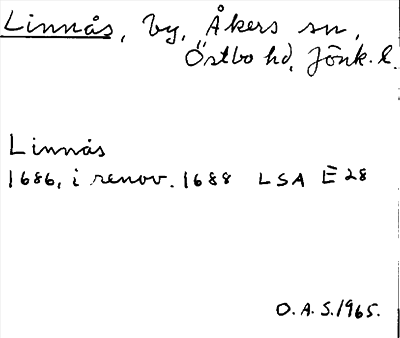 Linnås, by, Åkers sn,
Östbo hd, Jönk. l.
Linnås
1686, i renov. 1688 LSA E 28
O. A. S. 1965.